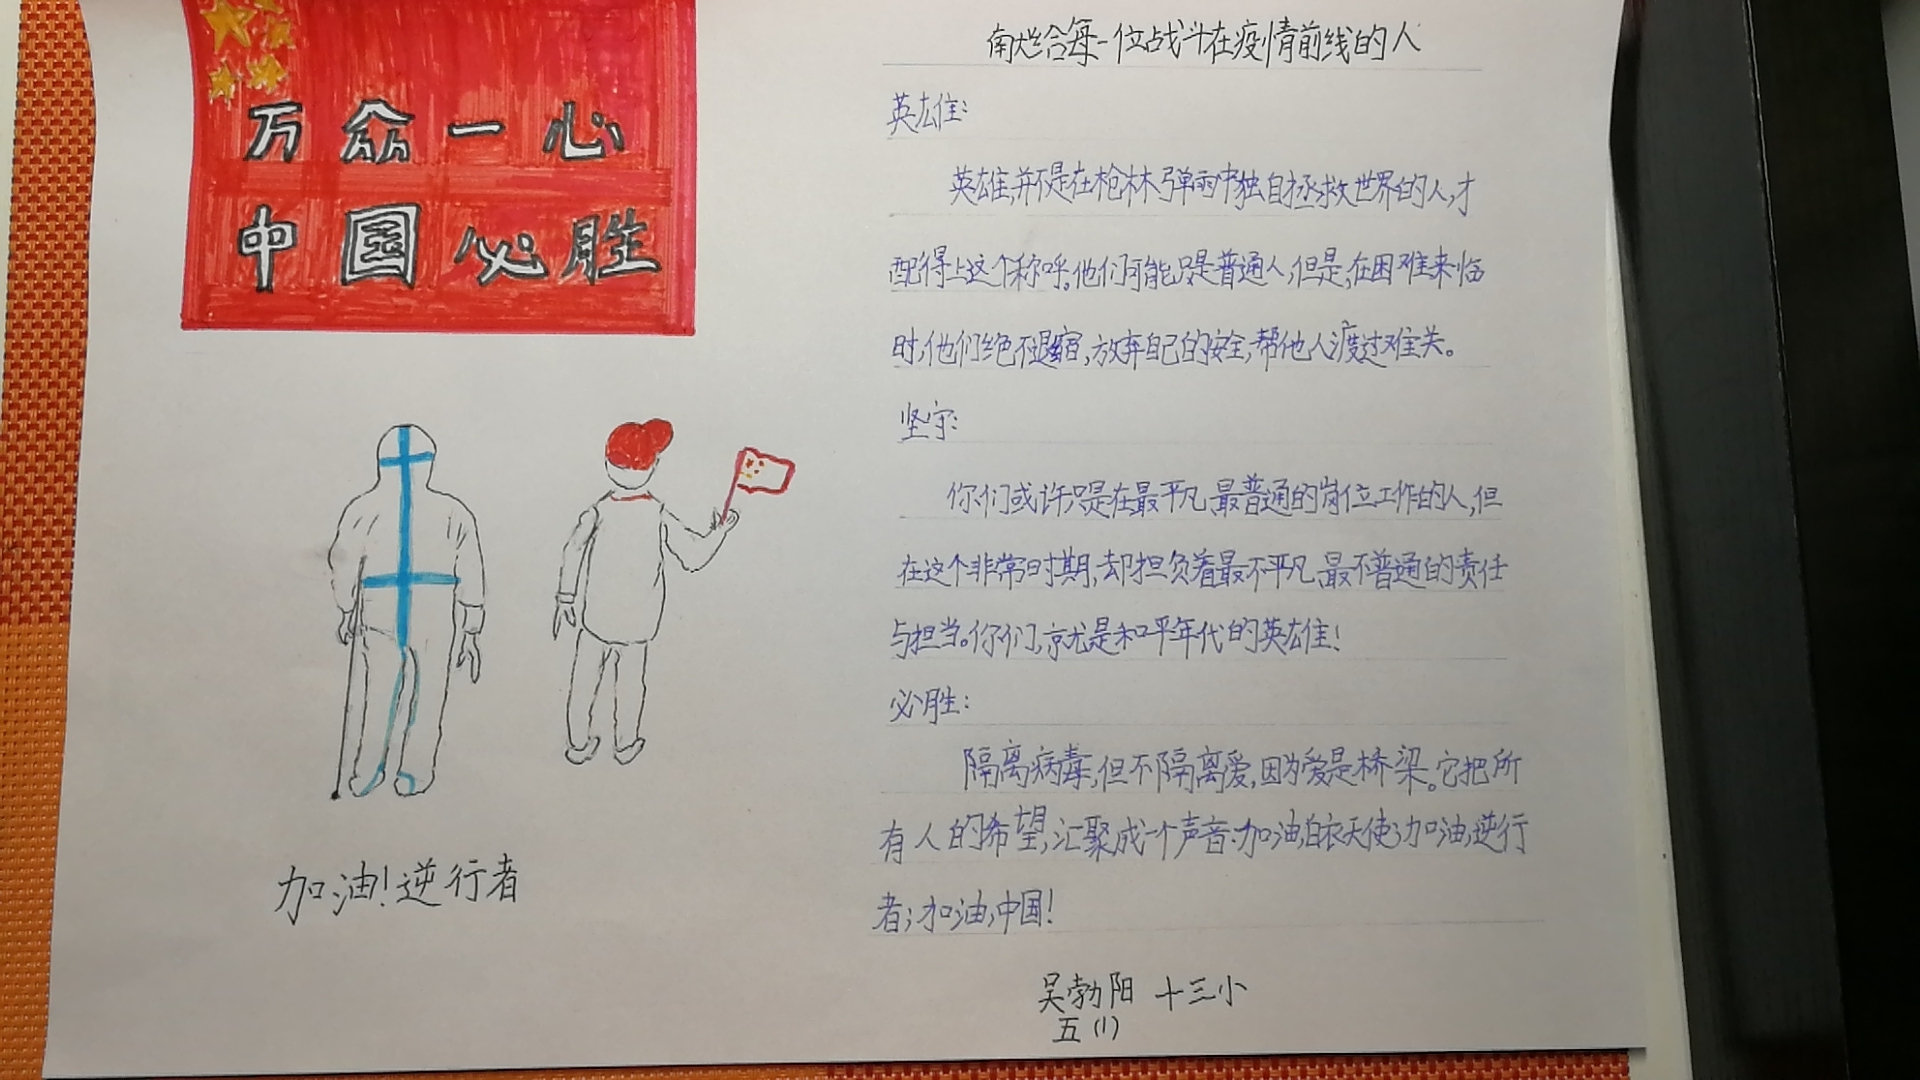 万众一心
中国必胜
加油!逆行者
给每一位战斗在疫情前线的人
英雄:
英雄,并不是在枪林弹雨中独自拯救世界的人,才
配得上这个称呼。他们可能只是普通人,但是,在困难来临
时,他们绝不退缩,放弃自己的安全,帮他人渡过难关。
坚守:
你们或许只是在最平凡、最普通的岗位工作的人,但
在这个非常时期,却担负着最不平凡、最不普通的责任
与担当。你们,就是和平年代的英雄!
必胜:
隔离病毒,但不隔离爱,因为爱是桥梁。它把所
有人的希望,汇聚成一个声音:加油,白衣天使;加油,逆行
者;加油,中国!
吴勃阳 十三小
五(1)